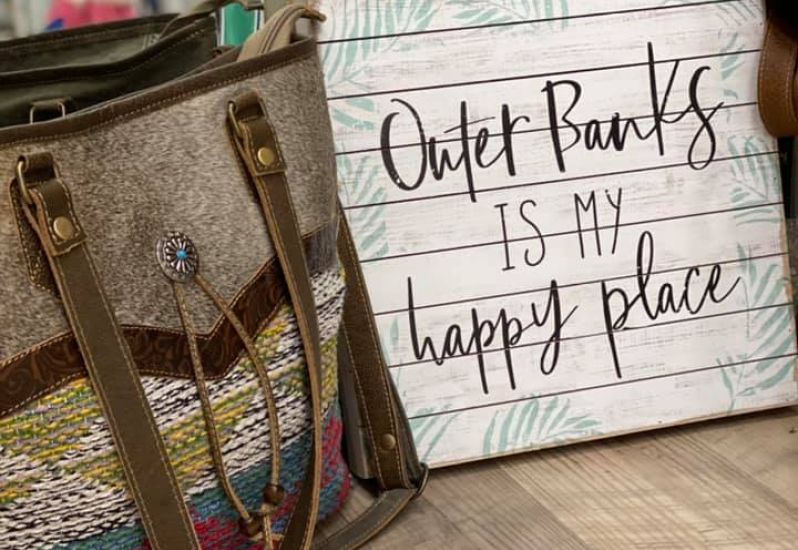 Outer Banks
IS MY
happy place